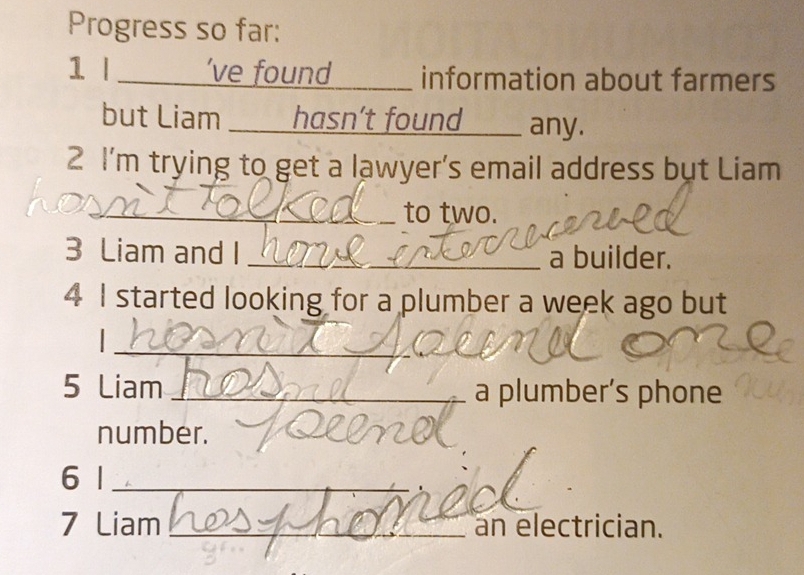 Progress so far:
1 I 've found information about farmers
but Liam hasn't found any.
2 I'm trying to get a lawyer's email address but Liam
hasn't talked to two.
3 Liam and I have interviewed a builder.
4 I started looking for a plumber a week ago but
I hasn't found one.
5 Liam has found a plumber's phone
number.
6 I
7 Liam has phoned an electrician.